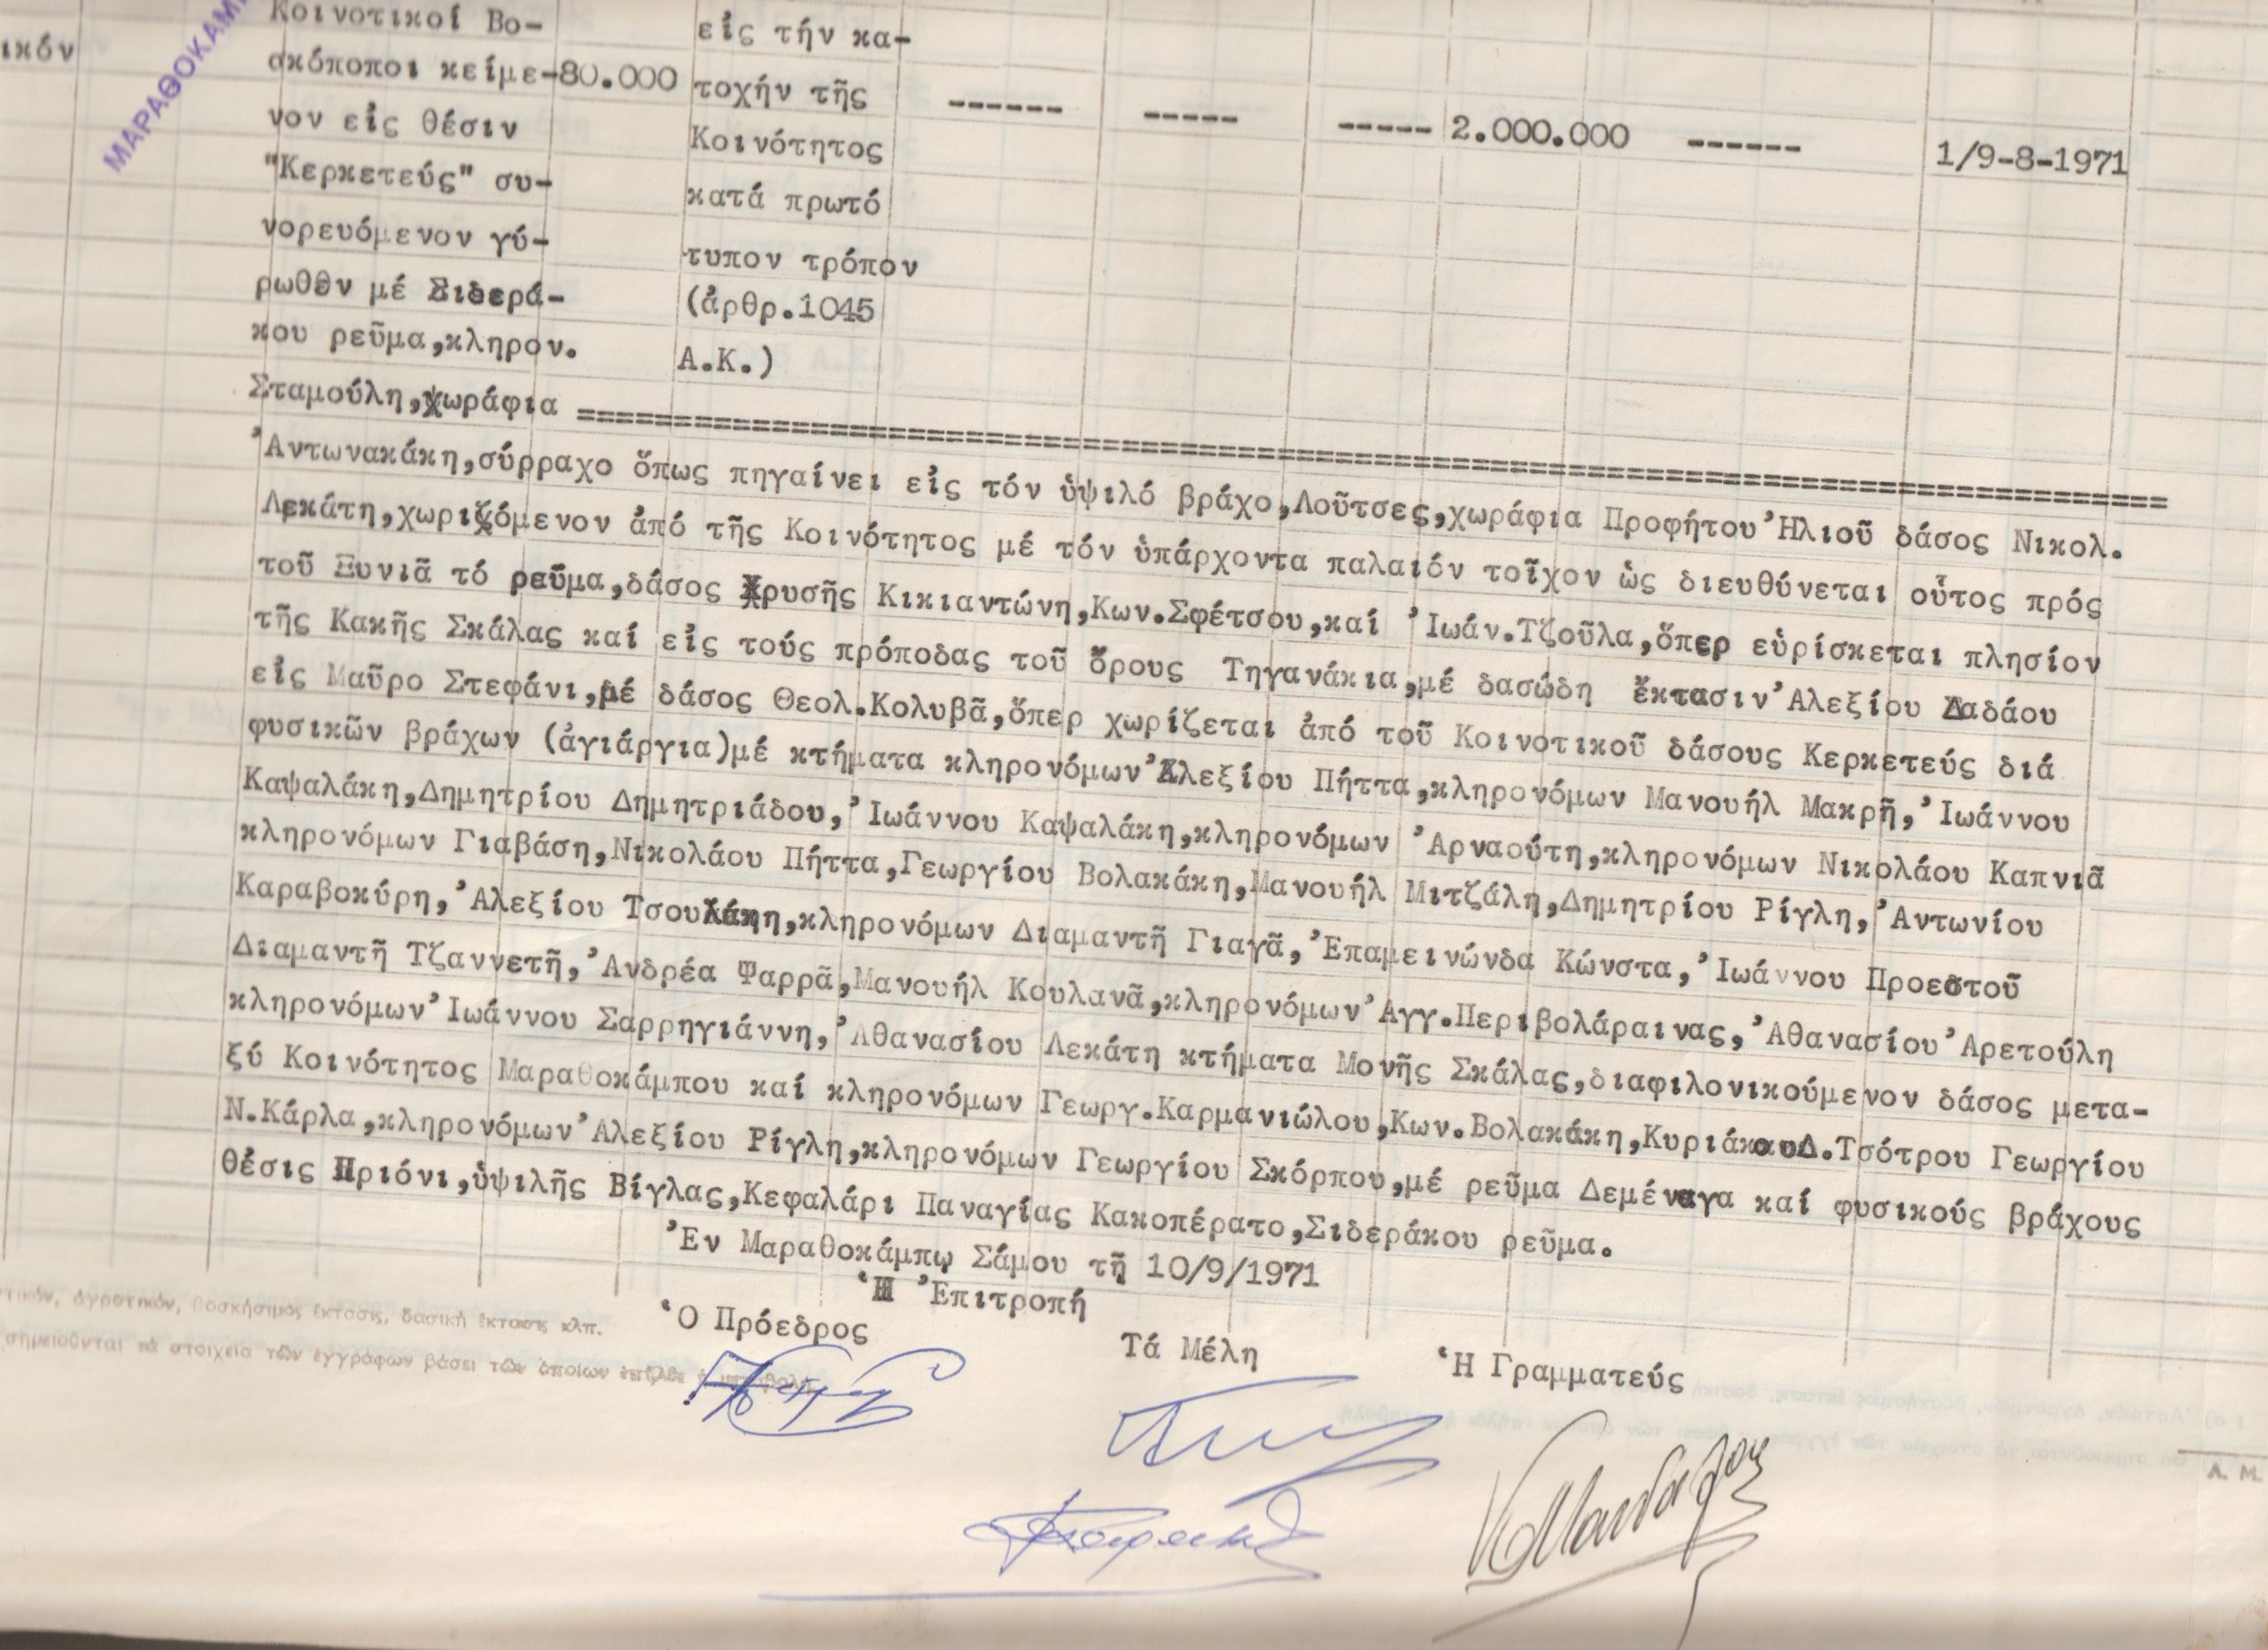 Κοινοτικοί Βο- εἰς τήν κα-
ικόν
ΜΑΡΑΘΟΚΑΜ
σκόποποι κείμε-80.000 τοχήν τῆς ------ ----- ----- 2.000.000 ------ 1/9-8-1971
νον εἰς θέσιν Κοινότητος
"Κερκετεύς" συ- κατά πρωτό
νορευόμενον γύ- τυπον τρόπον
ρωθεν μέ Σιδερά- (ἀρθρ.1045
κου ρεῦμα,κληρον. Α.Κ.)
Σταμούλη,χωράφια ================================
'Αντωνακάκη,σύρραχο ὅπως πηγαίνει εἰς τόν ὑψιλό βράχο,Λοῦτσες,χωράφια Προφήτου 'Ηλιοῦ δάσος Νικολ.
Λεκάτη,χωριζόμενον ἀπό τῆς Κοινότητος μέ τόν ὑπάρχοντα παλαιόν τοῖχον ὡς διευθύνεται οὗτος πρός
τοῦ Ξυνιᾶ τό ρεῦμα,δάσος Χρυσῆς Κικιαντώνη,Κων.Σφέτσου,καί 'Ιωάν.Τζοῦλα,ὅπερ εὑρίσκεται πλησίον
τῆς Κακῆς Σκάλας καί εἰς τούς πρόποδας τοῦ ὅρους Τηγανάκια,μέ δασώδη ἔκτασιν 'Αλεξίου Δαδάου
εἰς Μαῦρο Στεφάνι,μέ δάσος Θεολ.Κολυβᾶ,ὅπερ χωρίζεται ἀπό τοῦ Κοινοτικοῦ δάσους Κερκετεύς διά
φυσικῶν βράχων (ἀγιάργια)μέ κτήματα κληρονόμων 'Αλεξίου Πήττα,κληρονόμων Μανουήλ Μακρῆ,'Ιωάννου
Καψαλάκη,Δημητρίου Δημητριάδου,'Ιωάννου Καψαλάκη,κληρονόμων 'Αρναούτη,κληρονόμων Νικολάου Καπνιᾶ
κληρονόμων Γιαβάση,Νικολάου Πήττα,Γεωργίου Βολακάκη,Μανουήλ Μιτζάλη,Δημητρίου Ρίγλη,'Αντωνίου
Καραβοκύρη,'Αλεξίου Τσουλάκη,κληρονόμων Διαμαντῆ Γιαγᾶ,'Επαμεινώνδα Κώνστα,'Ιωάννου Προεστοῦ
Διαμαντῆ Τζαννετῆ,'Ανδρέα Ψαρρᾶ,Μανουήλ Κουλανᾶ,κληρονόμων 'Αγγ.Περιβολάραινας,'Αθανασίου 'Αρετούλη
κληρονόμων 'Ιωάννου Σαρρηγιάννη,'Αθανασίου Λεκάτη κτήματα Μονῆς Σκάλας,διαφιλονικούμενον δάσος μετα-
ξύ Κοινότητος Μαραθοκάμπου καί κληρονόμων Γεωργ.Καρμανιώλου,Κων.Βολακάκη,Κυριάκου Δ.Τσότρου Γεωργίου
Ν.Κάρλα,κληρονόμων 'Αλεξίου Ρίγλη,κληρονόμων Γεωργίου Σκόρπου,μέ ρεῦμα Δεμέναγα καί φυσικούς βράχους
θέσις Πριόνι,ὑψιλῆς Βίγλας,Κεφαλάρι Παναγίας Κακοπέρατο,Σιδεράκου ρεῦμα.
'Εν Μαραθοκάμπῳ Σάμου τῇ 10/9/1971
'Η 'Επιτροπή
'Ο Πρόεδρος Τά Μέλη 'Η Γραμματεύς
τικόν, ἀγροτικόν, βοσκήσιμος ἔκτασις, δασική ἔκτασις κλπ.
σημειοῦνται τά στοιχεία τῶν ἐγγράφων βάσει τῶν ὁποίων ἐπῆλθε ἡ μεταβολή
Λ. Μ.